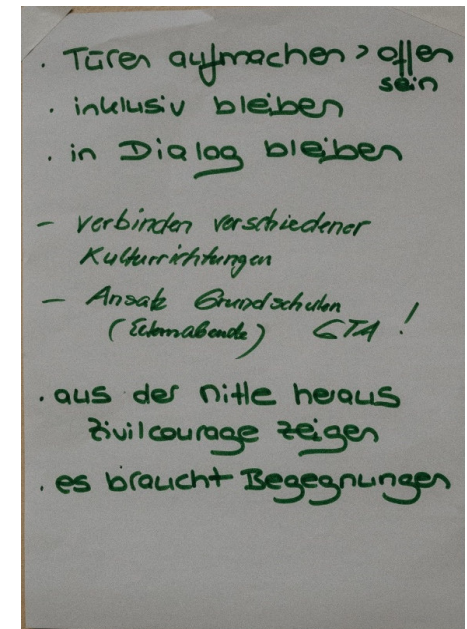 · Türen aufmachen > offen
sein
· inklusiv bleiben
· in Dialog bleiben
– verbinden verschiedener
Kulturrichtungen
– Ansatz Grundschulen
(Elternabende) GTA !
· aus der Mitte heraus
Zivilcourage zeigen
· es braucht Begegnungen